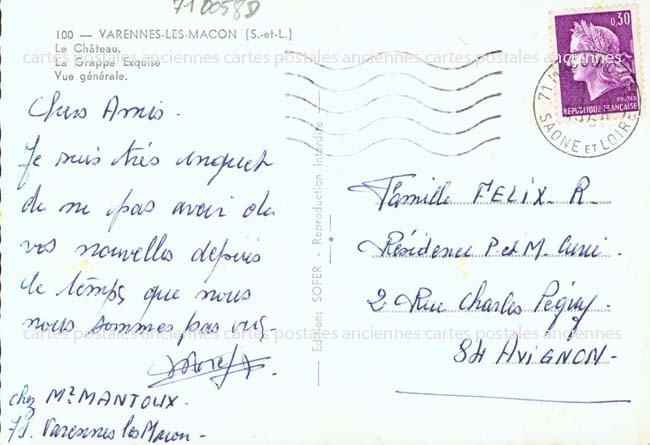 71 0058D
100 — VARENNES-LES-MACON (S.-et-L.)
Le Château.
La Grappe Exquise
Vue générale.
cartes postales anciennes cartes postales anciennes cartes postales anciennes
Chers Amis.
Je suis très inquiet
de ne pas avoir de
vos nouvelles depuis
le temps que nous
nous sommes pas vus.
cartes postales anciennes cartes postales anciennes cartes postales anciennes
chez Mr MANTOUX.
71. Varennes les Macon.
Editions SOFER - Reproduction interdite
0,30
POSTES
REPUBLIQUE FRANÇAISE
71
SAONE ET LOIRE
Famille FELIX. R
Résidence P et M. Curie.
2 Rue Charles Péguy.
84 AVIGNON.